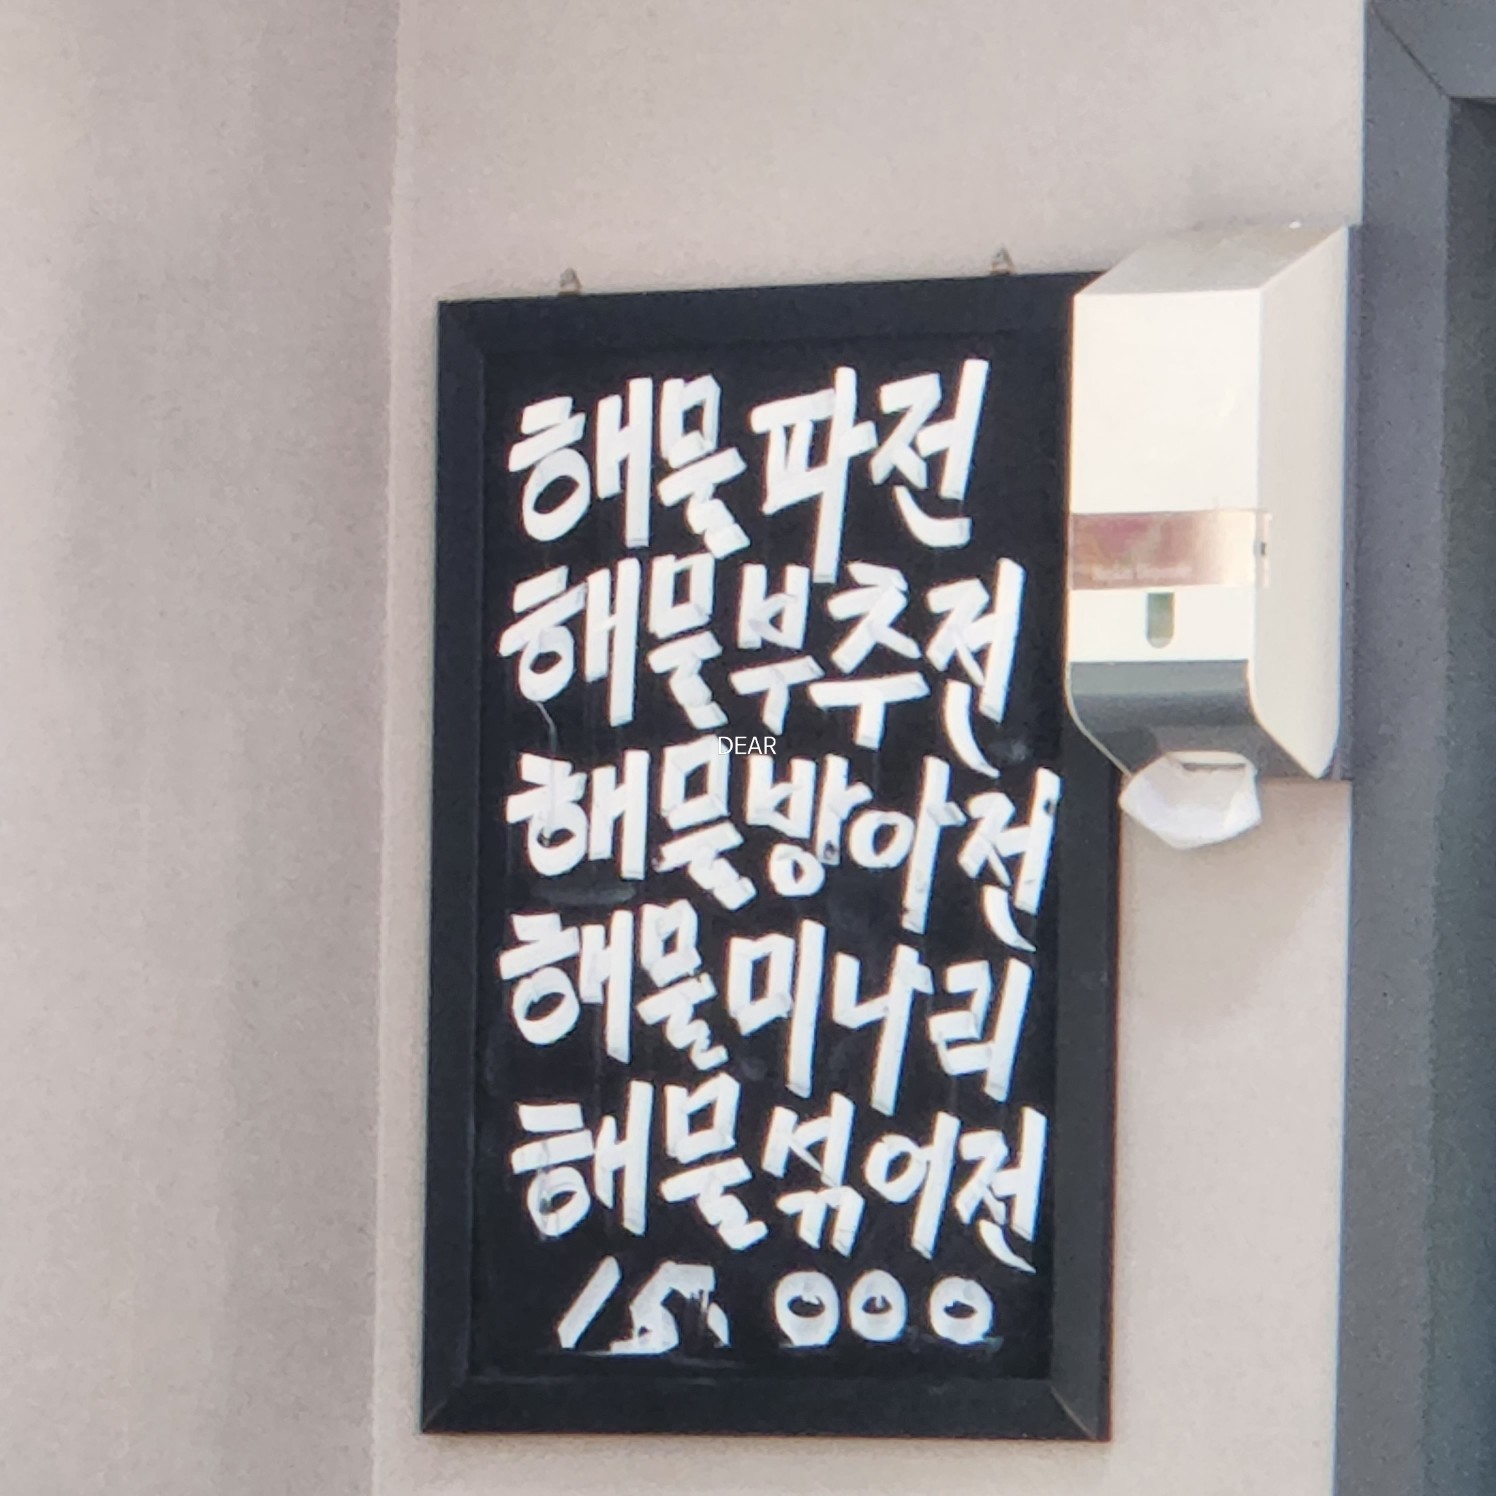 해물파전
해물부추전
DEAR
해물방아전
해물미나리
해물섞어전
15.000